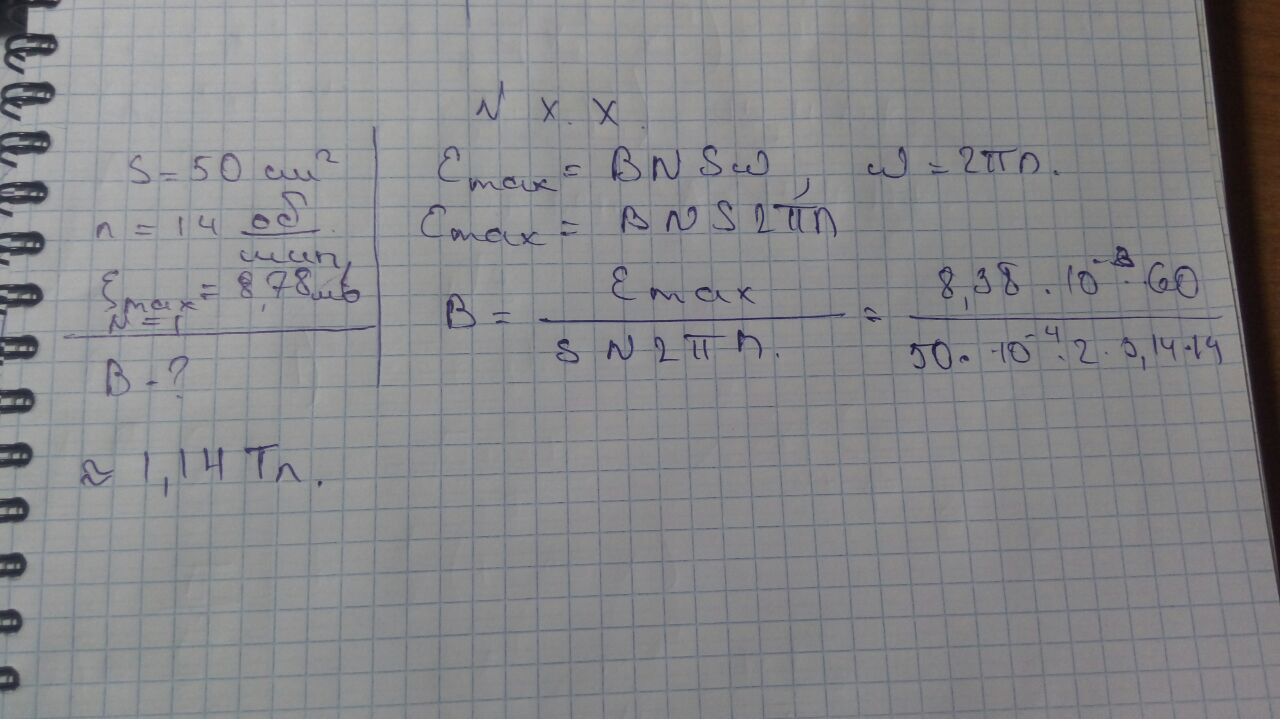 N X. X.
S = 50 см²
n = 14 об/мин
Ɛmax = 8,78 мв
N = 1
B - ?
Ɛmax = BNSω, ω = 2πn.
Ɛmax = BNS2πn
B = Ɛmax / SN2πn. = 8,38 · 10⁻³ · 60 / 50 · 10⁻⁴ · 2 · 3,14 · 14
≈ 1,14 Тл.